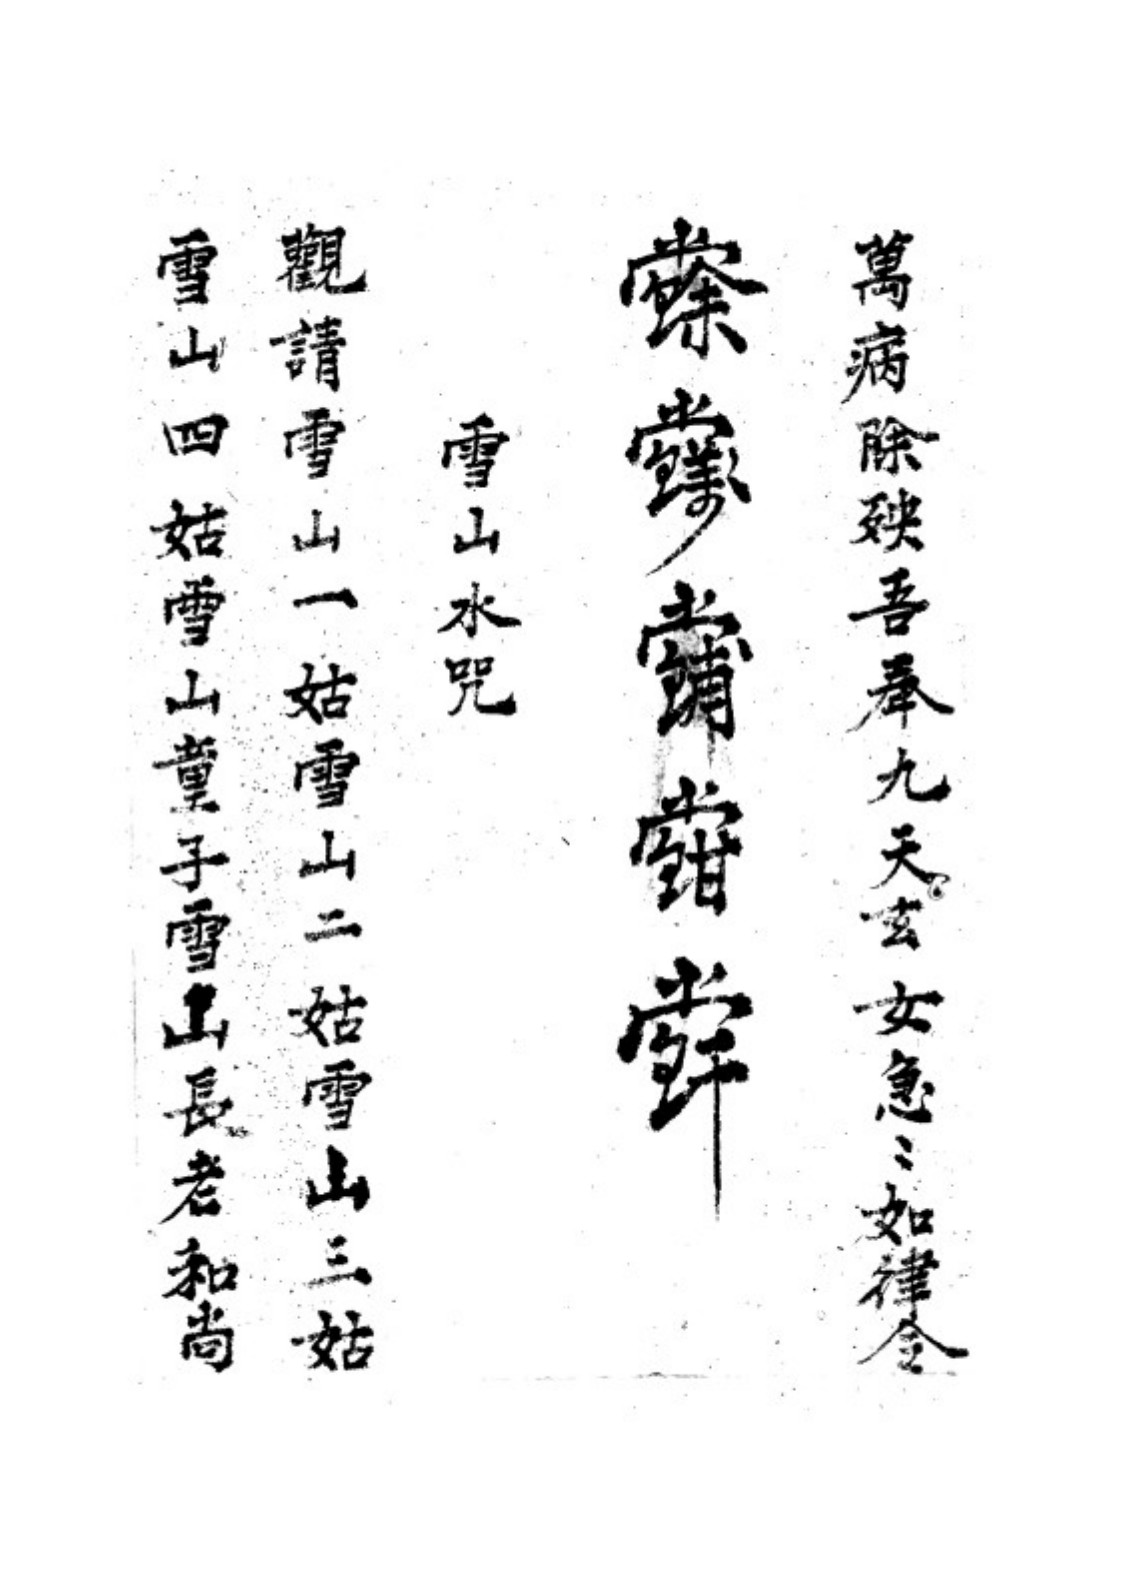 萬病除殃吾奉九天玄女急〻如律令
雪山水咒
觀請雪山一姑雪山二姑雪山三姑
雪山四姑雪山童子雪山長老和尚